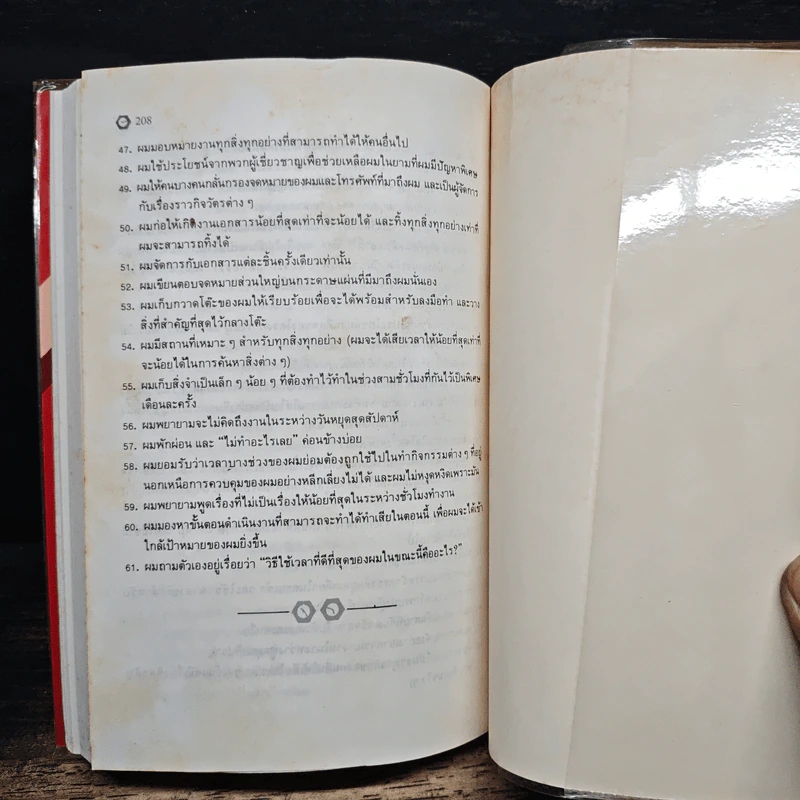 208
47. ผมมอบหมายงานทุกสิ่งทุกอย่างที่สามารถทำได้ให้คนอื่นไป
48. ผมใช้ประโยชน์จากพวกผู้เชี่ยวชาญเพื่อช่วยเหลือผมในยามที่ผมมีปัญหาพิเศษ
49. ผมให้คนบางคนกลั่นกรองจดหมายของผมและโทรศัพท์ที่มาถึงผม และเป็นผู้จัดการ
กับเรื่องราวกิจวัตรต่าง ๆ
50. ผมก่อให้เกิดงานเอกสารน้อยที่สุดเท่าที่จะน้อยได้ และทิ้งทุกสิ่งทุกอย่างเท่าที่
ผมจะสามารถทิ้งได้
51. ผมจัดการกับเอกสารแต่ละชิ้นครั้งเดียวเท่านั้น
52. ผมเขียนตอบจดหมายส่วนใหญ่บนกระดาษแผ่นที่มีมาถึงผมนั่นเอง
53. ผมเก็บกวาดโต๊ะของผมให้เรียบร้อยเพื่อจะได้พร้อมสำหรับลงมือทำ และวาง
สิ่งที่สำคัญที่สุดไว้กลางโต๊ะ
54. ผมมีสถานที่เหมาะ ๆ สำหรับทุกสิ่งทุกอย่าง (ผมจะได้เสียเวลาให้น้อยที่สุดเท่าที่
จะน้อยได้ในการค้นหาสิ่งต่าง ๆ)
55. ผมเก็บสิ่งจำเป็นเล็ก ๆ น้อย ๆ ที่ต้องทำไว้ทำในช่วงสามชั่วโมงที่กันไว้เป็นพิเศษ
เดือนละครั้ง
56. ผมพยายามจะไม่คิดถึงงานในระหว่างวันหยุดสุดสัปดาห์
57. ผมพักผ่อน และ “ไม่ทำอะไรเลย” ค่อนข้างบ่อย
58. ผมยอมรับว่าเวลาบางช่วงของผมย่อมต้องถูกใช้ไปในทำกิจกรรมต่าง ๆ ที่อยู่
นอกเหนือการควบคุมของผมอย่างหลีกเลี่ยงไม่ได้ และผมไม่หงุดหงิดเพราะมัน
59. ผมพยายามพูดเรื่องที่ไม่เป็นเรื่องให้น้อยที่สุดในระหว่างชั่วโมงทำงาน
60. ผมมองหาขั้นตอนดำเนินงานที่สามารถจะทำได้ทำเสียในตอนนี้ เพื่อผมจะได้เข้า
ใกล้เป้าหมายของผมยิ่งขึ้น
61. ผมถามตัวเองอยู่เรื่อยว่า “วิธีใช้เวลาที่ดีที่สุดของผมในขณะนี้คืออะไร?”